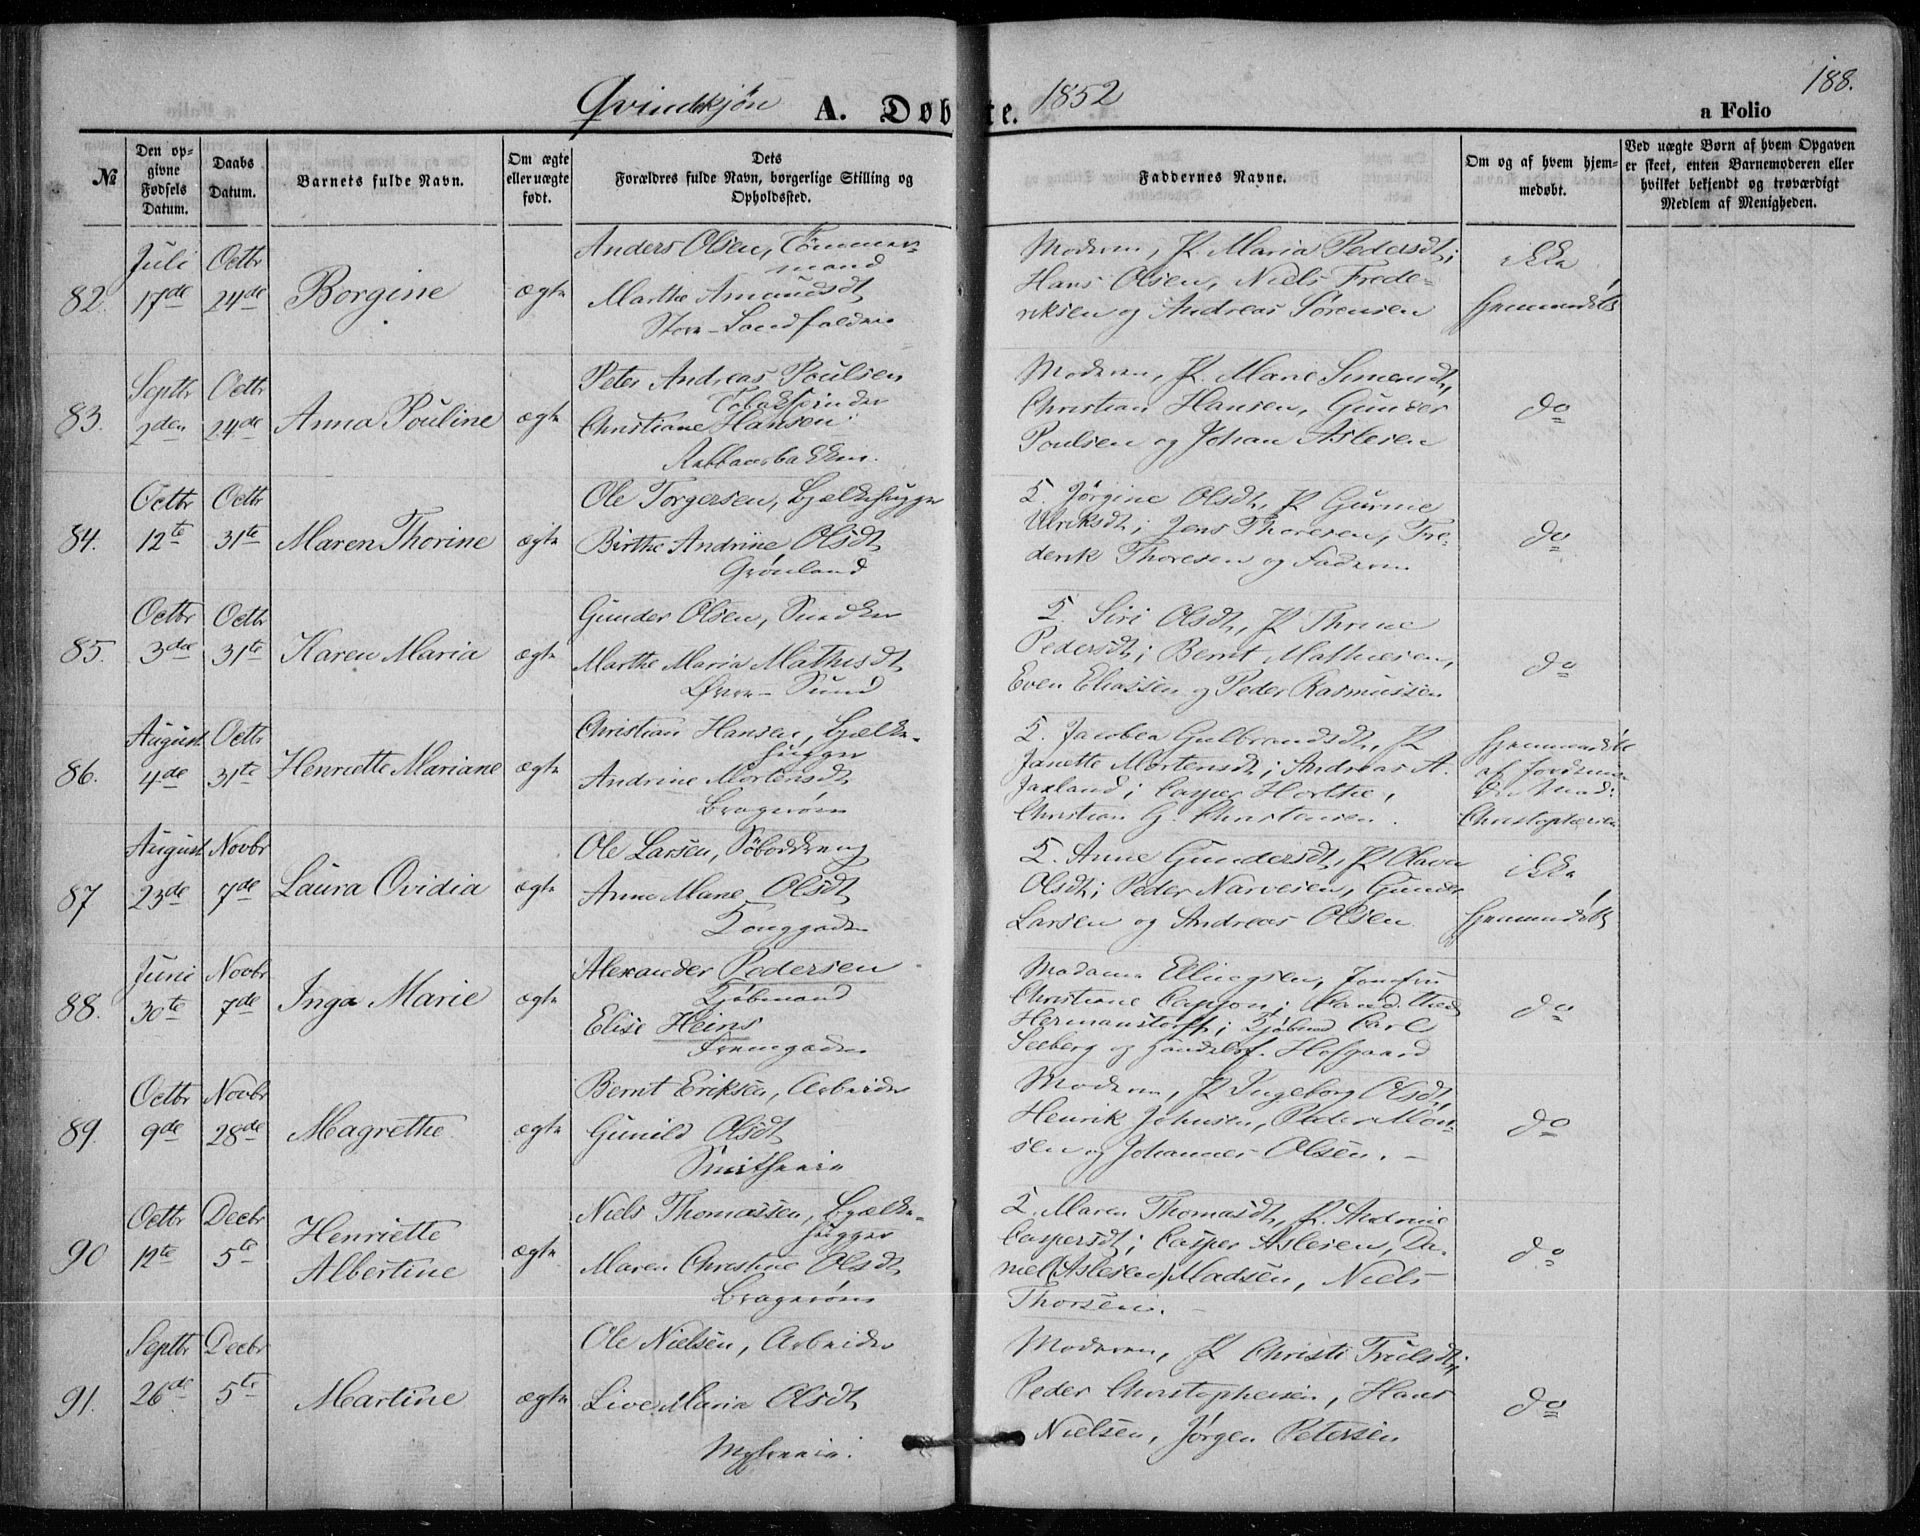 Qvindekjøn A. Døbte. 1852 a Folio 188.
№ | Den opgivne Fødsels Datum. | Daabs Datum. | Barnets fulde Navn. | Om ægte eller uægte født. | Dets Forældres fulde Navn, borgerlige Stilling og Opholdssted. | Faddernes Navne. | Om og af hvem hjemmedøbt. | Ved uægte Børn af hvem Opgaven er skeet, enten Barnemoderen eller hvilket bekjendt og troværdigt Medlem af Menigheden.
Juli Octbr Anders Olsen, Tømmer- Moderen, P. Maria Pedersdt; ikke
mand
82. 17de 24de Borgine ægte Marthe Amundsdt Hans Olsen, Niels Frede- hjemmedøbt
Store-Landfalden riksen og Andreas Sørensen
Septbr Octbr Peter Andreas Poulsen Moderen, P. Marie Simensdt,
Tobakspinder
83. 2den 24de Anna Pouline ægte Christiane Hansen Christian Hansen, Gunder do
Poulsen og Johan Aslesen
Octbr Octbr Ole Torgersen, Bjælkehugger Q. Jørgine Olsdt, P. Gurine
84. 12te 31te Maren Thorine ægte Birthe Andrine Olsdt Ulriksdt; Jens Thoresen, Fre- do
Grønland derik Thoresen og Faderen
Octbr Octbr Gunder Olsen, Snedker Q. Siri Olsdt, P. Thrine
85. 3die 31te Karen Maria ægte Marthe Maria Mathisdt Pedersdt; Bernt Mathiesen, do
Øvre-Sund Even Eliassen og Peder Rasmussen
August Octbr Christian Hansen, Bjælke- Q. Jacobea Gulbrandsdt, P. hjemmedøbt
hugger
86. 4de 31te Henriette Mariane ægte Andrine Mortensdt Janette Mortensdt; Andreas A. af Jordemo-
Bragerøen Jaxland; Casper Horthe, Mad:
Christian G. Christensen. Christophersen
August Novbr Ole Larsen, Søboddreng Q. Anne Gundersdt, P. Olava ikke
87 23de 7de Laura Ovidia ægte Anne Marie Olsdt Olsdt; Peder Narvesen, Gunder
Tonggaden Larsen og Andreas Olsen hjemmedøbt
Juni Novbr Alexander Pedersen Madame Ellingsen, Jomfru
88. 30te 7de Inga Marie ægte Kjøbmand Christiane Cappon; Cand. theol
Elise Heins Hermanstorff; Kjøbmd Carl do
Fremgaden Seeberg og Handelsf. Hofgaard
Octbr Novbr Bernt Eriksen, Arbeider Moderen, P. Ingeborg Olsdt,
89. 9de 28de Magrethe ægte Gunild Olsdt Henrik Johnsen, Peder Mon- do
Smithsveie sen og Johannes Olsen.
Octbr Decbr Niels Thomassen, Bjælke- Q. Maren Thomasdt, P. Andrine
hugger
90 12te 5te Henriette Albertine ægte Maren Christine Olsdt Caspersdt; Casper Aslesen, Da- do
Bragerøen niel (Aslesen) Madsen, Niels
Thorsen.
Septbr Decbr Ole Nielsen, Arbeider Moderen, P. Christi Trulsdt,
91. 26de 5te Martine ægte Live Maria Olsdt Peder Christophersen, Hans do
Nielsen, Jørgen Petersen